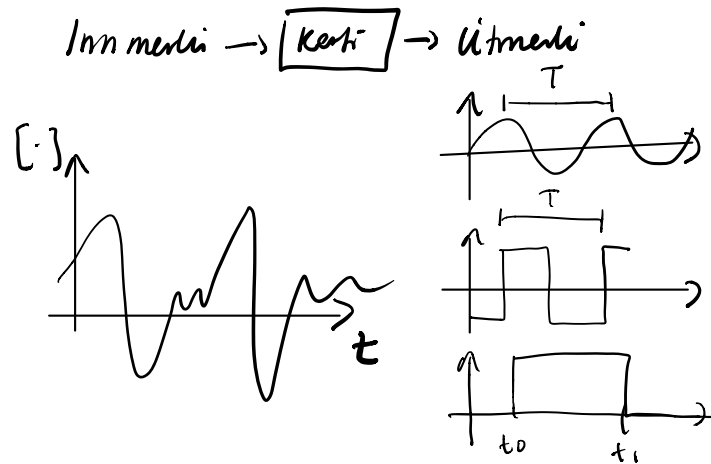 Innmerki → Kerfi → Útmerki
T
[·]
T
t
t0 t1